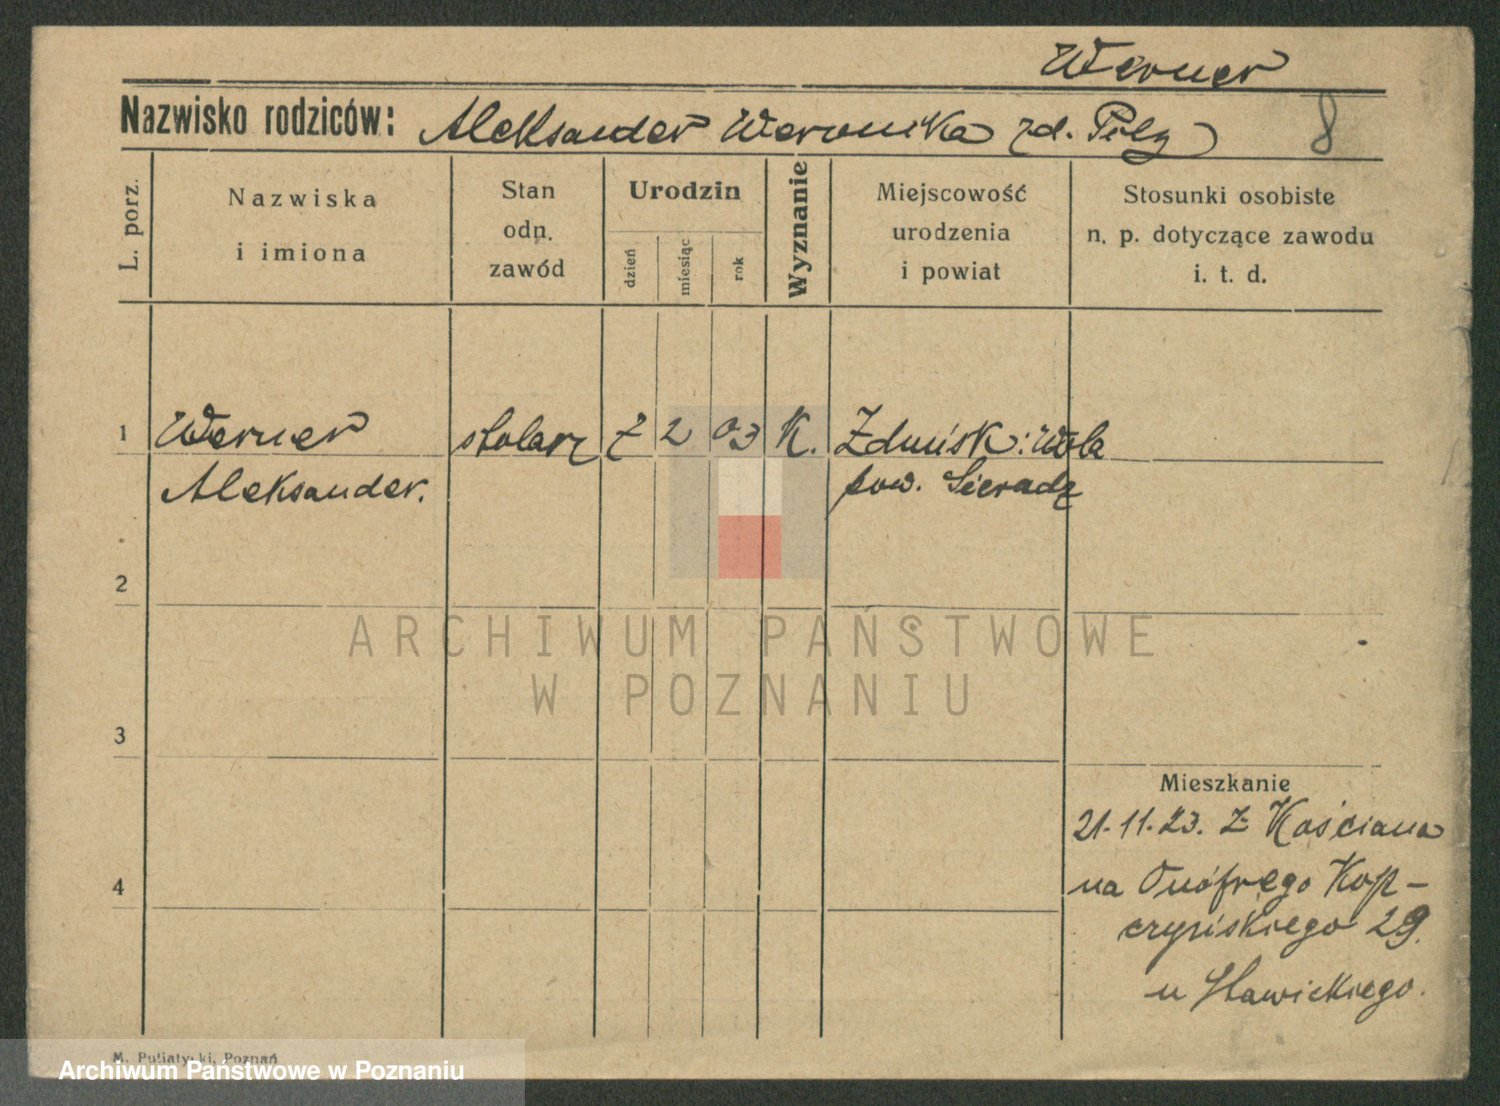 Werner
Nazwisko rodziców: Aleksander Weronika zd. Pilz
8
L. porz.
Nazwiska
i imiona
Stan
odn.
zawód
Urodzin
dzień
miesiąc
rok
Wyznanie
Miejscowość
urodzenia
i powiat
Stosunki osobiste
n. p. dotyczące zawodu
i. t. d.
1 Werner stolarz 2 2 03 K. Zduńsk: Wola
Aleksander. pow. Sieradz
2
ARCHIWUM PAŃSTWOWE
W POZNANIU
3
Mieszkanie
21.11.23. z Kościana
4
na Onófrego Kop-
czyńskiego 29.
u Sławickiego.
M. Putiatycki, Poznań
Archiwum Państwowe w Poznaniu